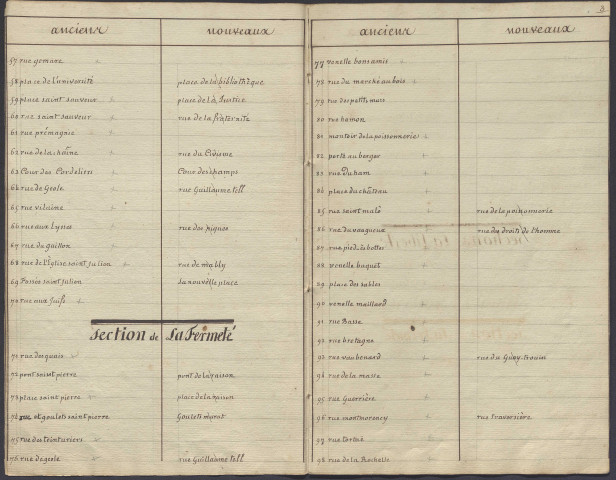 anciens nouveaux
57 rue gemare
58 place de l'université place de la bibliothèque
59 place saint sauveur place de la Justice
60 rue saint sauveur rue de la fraternité
61 rue prémagnie
62 rue de la chaîne rue du Civisme
63 Cour des Cordeliers Cour des champs
64 rue de Geole rue Guillaume tell
65 rue vilaine
66 rue aux Lysses rue des piques
67 rue du guillon
68 rue de l'Eglise saint Julien rue de mably
69 fossés saint Julien la nouvelle place
70 rue aux Juifs
Section de La Fermeté
71 rue des quais
72 pont saint pierre pont de la raison
73 place saint pierre place de la raison
74 et goulets saint pierre Goulets marat
75 rue des teinturiers
76 rue de geole rue Guillaume tell
anciens nouveaux
77 venelle bons amis
78 rue du marché au bois
79 rue des petits murs
80 rue hamon
81 montoir de la poissonnerie
82 porte au berger
83 rue du ham
84 place du château
85 rue saint malo rue de la poissonnerie
86 rue du vaugueux rue du droits de l'homme
87 rue pied de bottes
88 venelle buquet
89 place des sables
90 venelle maillard
91 rue Basse
92 rue bretagne
93 rue vaubenard rue du Guay-trouin
94 rue de la masse
95 rue Guerrière
96 rue montmorency rue traversière
97 rue
98 rue de la Rochelle